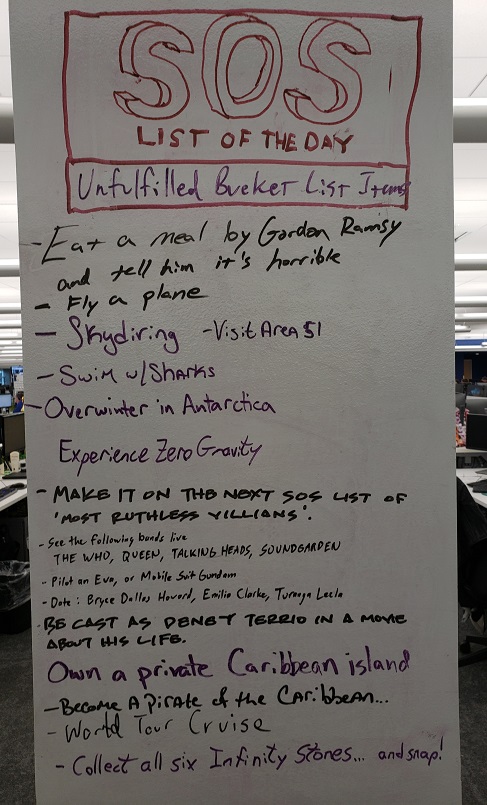 SOS
LIST OF THE DAY
Unfulfilled Bucket List Items
- Eat a meal by Gordon Ramsy
and tell him it's horrible
- Fly a plane
- Skydiving - Visit Area 51
- Swim w/Sharks
- Overwinter in Antarctica
Experience Zero Gravity
- MAKE IT ON THE NEXT SOS LIST OF
'MOST RUTHLESS VILLIANS'.
- See the following bands live
THE WHO, QUEEN, TALKING HEADS, SOUNDGARDEN
- Pilot an Eva, or Mobile Suit Gundam
- Date: Bryce Dallas Howard, Emilia Clarke, Turanga Leela
- BE CAST AS DENEY TERRIO IN A MOVIE
ABOUT HIS LIFE.
Own a private Caribbean island
- Become A Pirate of the Caribbean...
- World Tour Cruise
- Collect all six Infinity Stones... and snap!